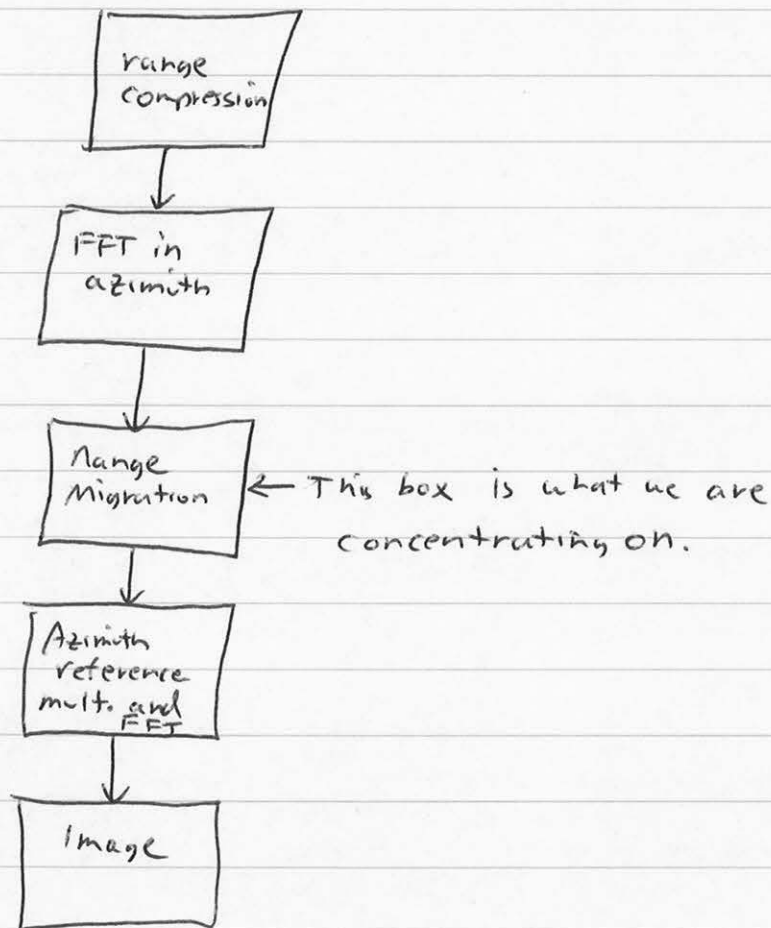 range
compression
FFT in
azimuth
Range
Migration
← This box is what we are
concentrating on.
Azimuth
reference
mult. and
FFT
Image